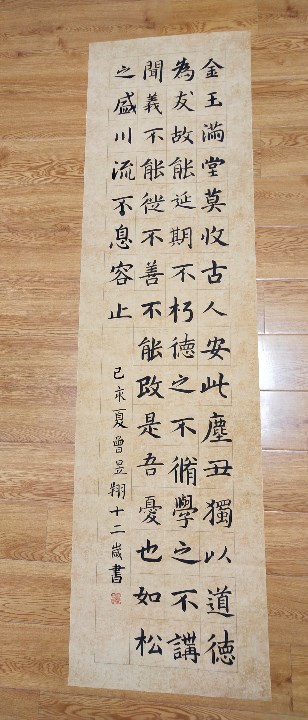 金玉滿堂莫收古人安此塵丑獨以道德
為友故能延期不朽德之不脩學之不講
聞義不能從不善不能改是吾憂也如松
之盛川流不息容止
己亥夏曾昱翔十二歲書